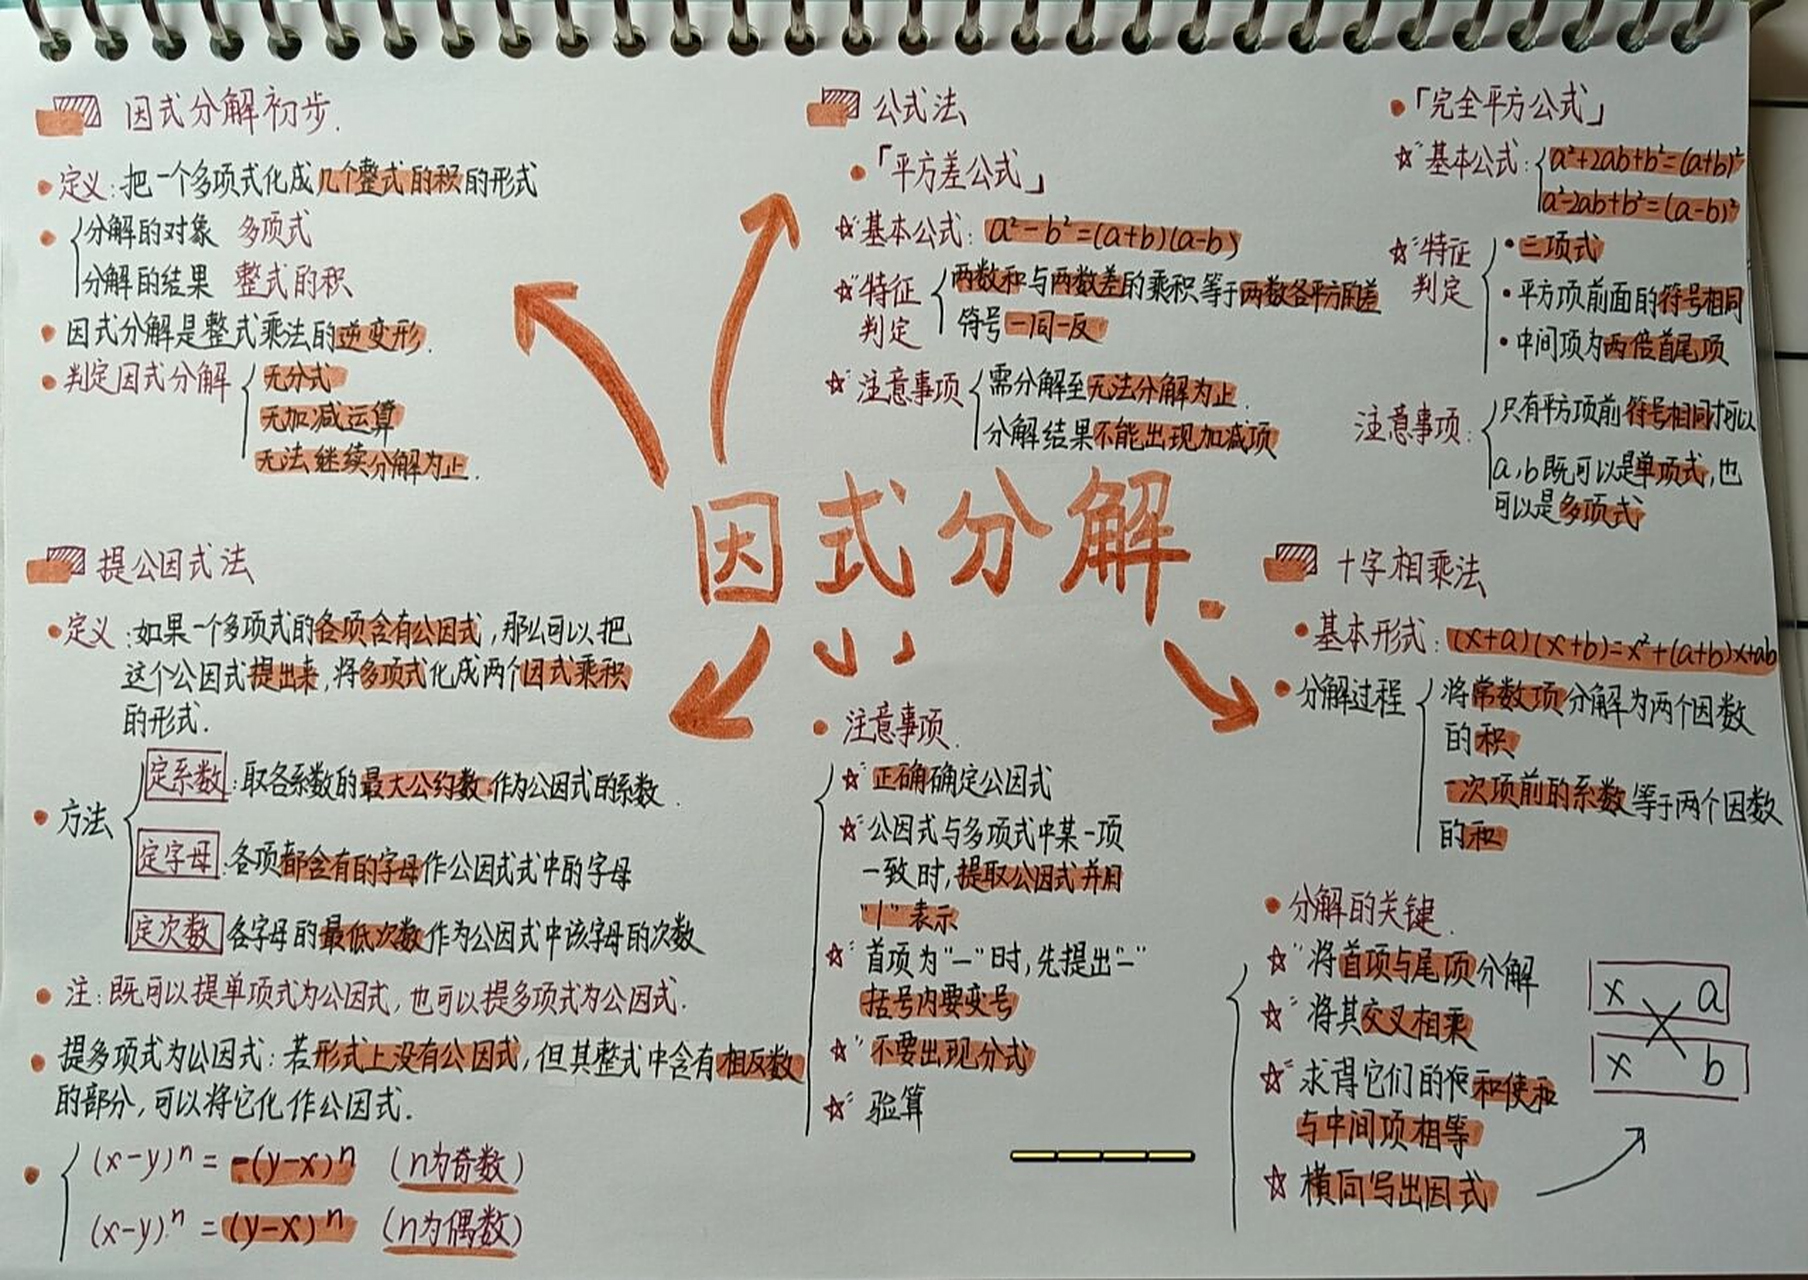 因式分解初步.
定义:把一个多项式化成几个整式的积的形式
分解的对象 多项式
分解的结果 整式的积
因式分解是整式乘法的逆变形.
判定因式分解
无分式
无加减运算
无法继续分解为止.
公式法
「平方差公式」
基本公式: a²-b²=(a+b)(a-b)
特征判定
两数和与两数差的乘积等于两数各平方的差
符号一同一反
注意事项
需分解至无法分解为止.
分解结果不能出现加减项
「完全平方公式」
基本公式:
a²+2ab+b²=(a+b)²
a²-2ab+b²=(a-b)²
特征判定
三项式
平方项前面的符号相同
中间项为两倍首尾项
注意事项:
只有平方项前符号相同才可以
a,b既可以是单项式,也
可以是多项式
因式分解.
提公因式法
定义:如果一个多项式的各项含有公因式,那么可以把
这个公因式提出来,将多项式化成两个因式乘积
的形式.
方法
定系数:取各系数的最大公约数作为公因式的系数.
定字母:各项都含有的字母作公因式式中的字母
定次数 各字母的最低次数作为公因式中该字母的次数
注:既可以提单项式为公因式,也可以提多项式为公因式.
提多项式为公因式:若形式上没有公因式,但其整式中含有相反数
的部分,可以将它化作公因式.
(x-y)ⁿ=-(y-x)ⁿ (n为奇数)
(x-y)ⁿ=(y-x)ⁿ (n为偶数)
注意事项.
正确确定公因式
公因式与多项式中某一项
一致时,提取公因式并用
"1"表示
首项为"-"时,先提出"-"
括号内要变号
不要出现分式
验算
十字相乘法
基本形式:(x+a)(x+b)=x²+(a+b)x+ab
分解过程
将常数项分解为两个因数
的积
一次项前的系数等于两个因数
的和
分解的关键.
将首项与尾项分解
将其交叉相乘
求得它们的和使和
与中间项相等
横向写出因式
x a
x b